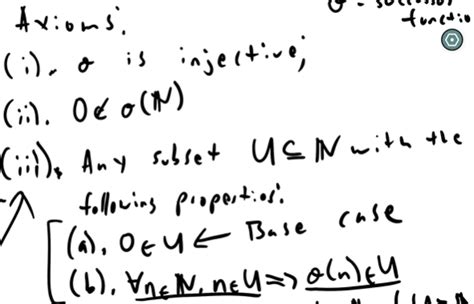 σ - successor
function
Axioms:
(i). σ is injective;
(ii). 0∉σ(ℕ)
(iii). Any subset U⊆ℕ with the
following properties:
(a). 0∈U ← Base case
(b). ∀n∈ℕ, n∈U ⇒ σ(n)∈U